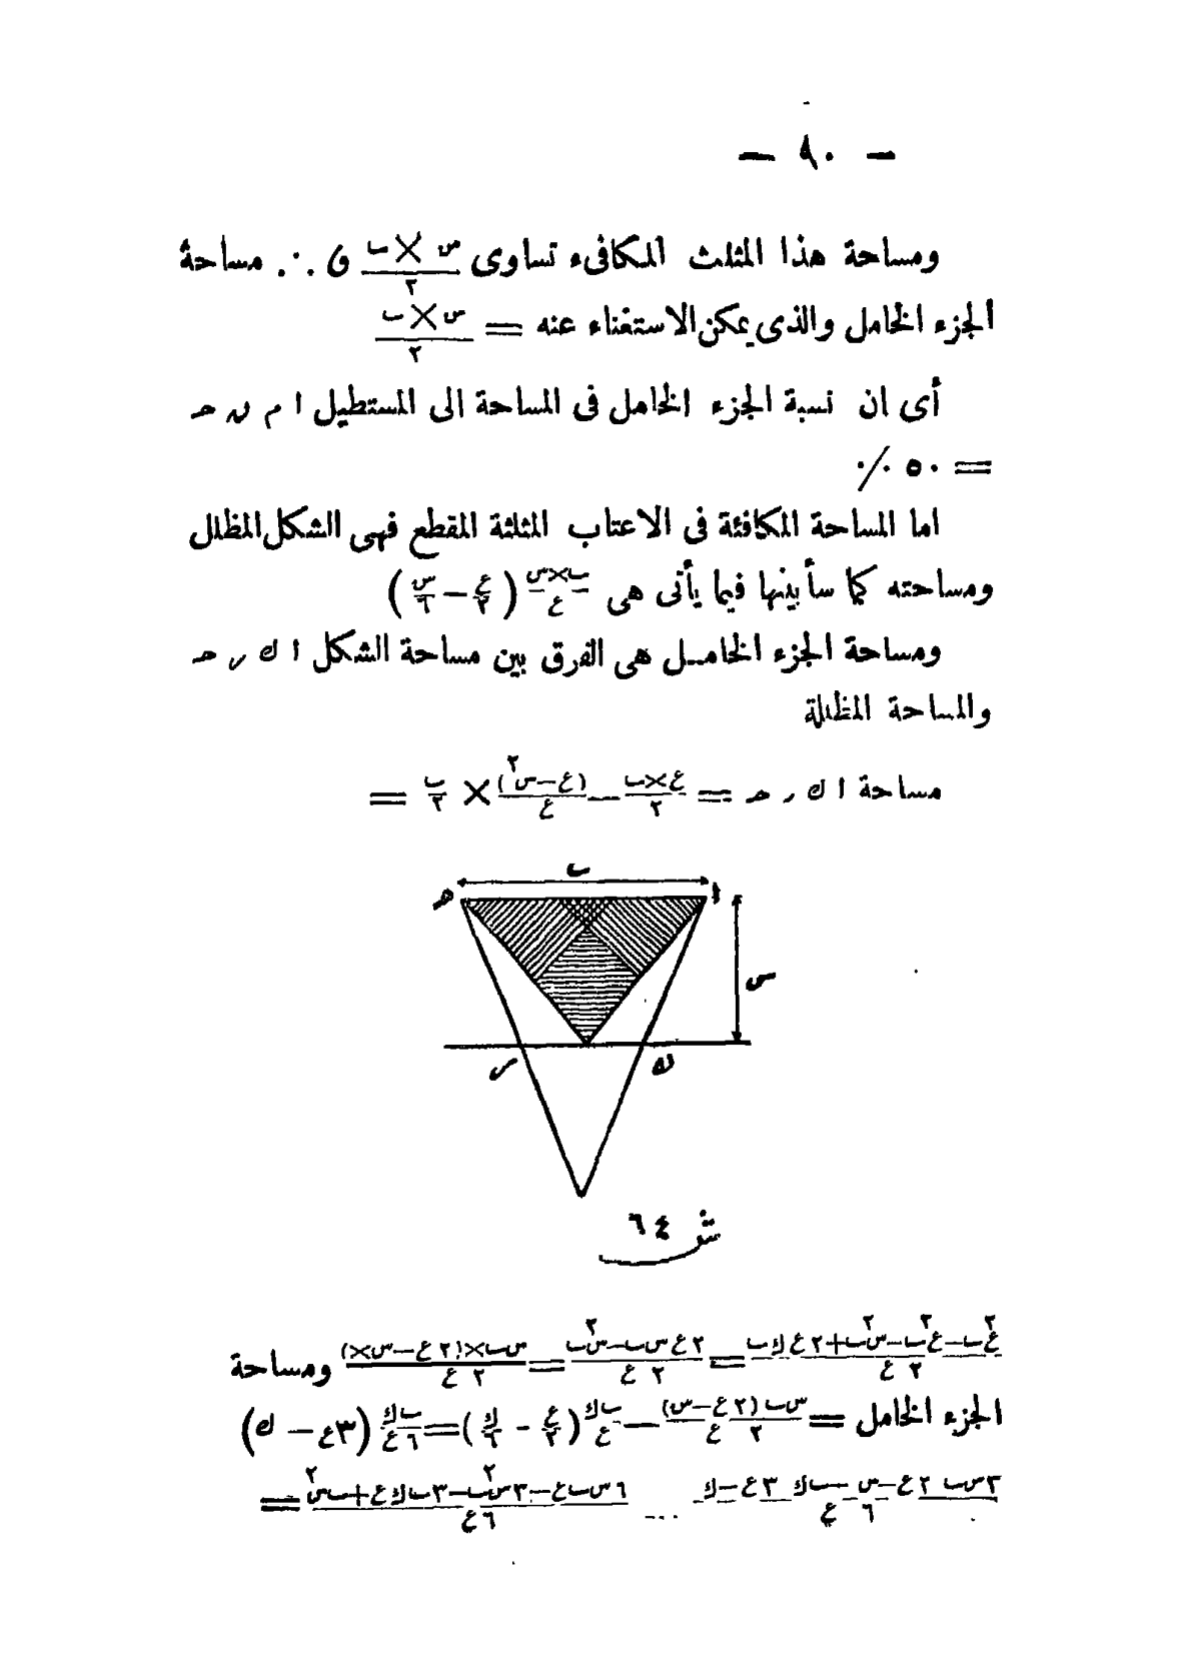 — ٩٠ —
ومساحة هذا المثلث المكافىء تساوى س × ب / ٢ ∴ مساحة
الجزء الخامل والذى يمكن الاستغناء عنه = س × ب / ٢
أى ان نسبة الجزء الخامل فى المساحة الى المستطيل ا م ں حـ
= ٥٠ ٪
اما المساحة المكافئة فى الاعتاب المثلثة المقطع فهى الشكل المظلل
ومساحته كما سأبينها فيما يأتى هى ب×س / ع (ع/٢ − س/٦)
ومساحة الجزء الخامل هى الفرق بين مساحة الشكل ا ك ر حـ
والمساحة المظللة
مساحة ا ك ر حـ = ع×ب / ٢ − (ع−س)٢ / ع × ب / ٢ =
ب
حـ ا
س
ر ك
ش ٦٤
ع٢ب−ع٢ب−س٢ب+٢ع ك ب / ٢ ع = ٢ع س ب−س٢ب / ٢ ع = س ب×(٢ع−س×) / ٢ ع ومساحة
الجزء الخامل = س ب (٢ع−س) / ٢ ع − ب ك / ع (ع/٢ − ك/٦) = ب ك / ٦ع (٣ع − ك)
٣س ب ٢ع−س − ب ك ٣ع−ك / ٦ ع ... ٦س ب ع−٣س٢ب−٣ب ك ع+ب س٢ / ٦ع =